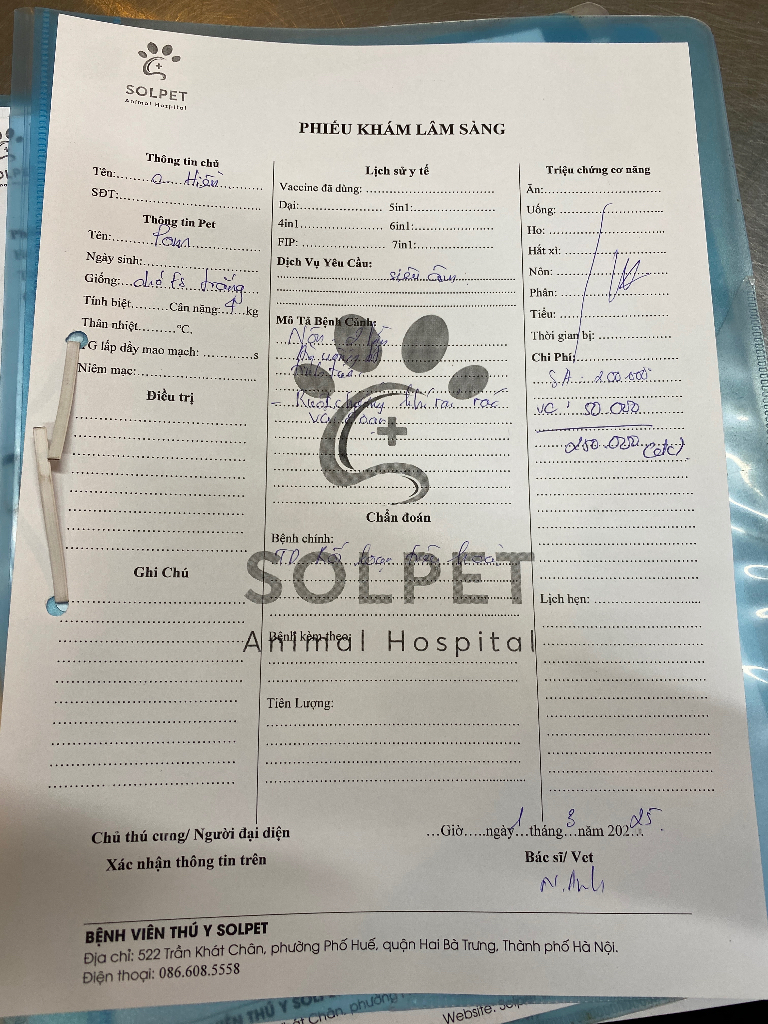 SOLPET
Animal Hospital
PHIẾU KHÁM LÂM SÀNG
Thông tin chủ
Tên: a Hiền
SĐT:
Thông tin Pet
Tên: Pom
Ngày sinh:
Giống: chó Fs trắng
Tính biệt Cân nặng: 4 kg
Thân nhiệt °C.
G lấp đầy mao mạch: s
Niêm mạc:
Điều trị
Ghi Chú
Lịch sử y tế
Vaccine đã dùng:
Dại: 5in1:
4in1 6in1:
FIP: 7in1:
Dịch Vụ Yêu Cầu:
siêu âm
Mô Tả Bệnh Cảnh:
Nôn
Chẩn đoán
Bệnh chính:
TD. Rối loạn tiêu hoá
SOLPET
Animal Hospital
Bệnh kèm theo:
Tiên Lượng:
Triệu chứng cơ năng
Ăn:
Uống:
Ho:
Hắt xì:
Nôn:
Phân:
Tiểu:
Thời gian bị:
Chi Phí:
S.A 200.000
VC: 50.000
250.000 (ck)
Lịch hẹn:
Chủ thú cưng/ Người đại diện
Xác nhận thông tin trên
Giờ ngày 1 tháng 3 năm 2025.
Bác sĩ/ Vet
N. Anh
BỆNH VIỆN THÚ Y SOLPET
Địa chỉ: 522 Trần Khát Chân, phường Phố Huế, quận Hai Bà Trưng, Thành phố Hà Nội.
Điện thoại: 086.608.5558
Website: